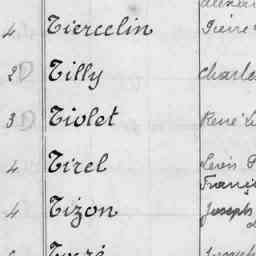 4 Tiercelin Pierre
2 D Tilly Charle
3 D Tiolet René L
4 Tirel Louis P
Franç
4 Tizon Joseph